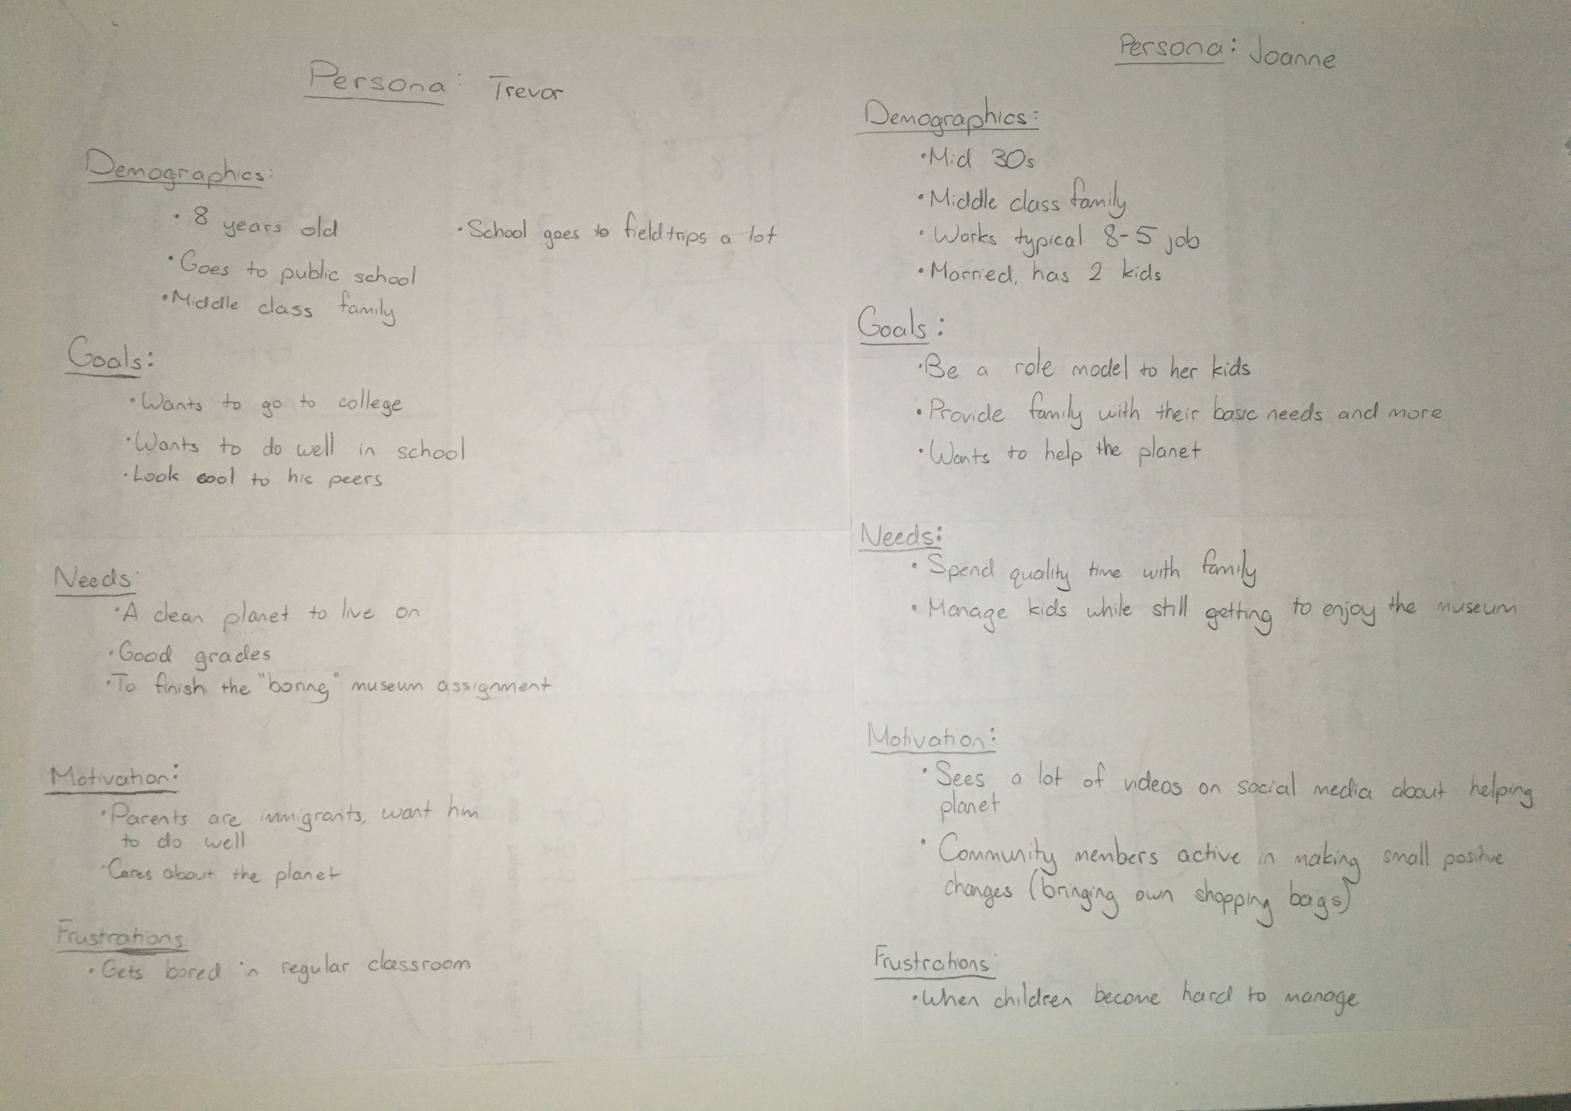 Persona: Trevor
Demographics:
• 8 years old
• School goes to field trips a lot
• Goes to public school
• Middle class family
Goals:
• Wants to go to college
• Wants to do well in school
• Look cool to his peers
Needs:
• A clean planet to live on
• Good grades
• To finish the "boring" museum assignment
Motivation:
• Parents are immigrants, want him
to do well
• Cares about the planet
Frustrations
• Gets bored in regular classroom
Persona: Joanne
Demographics:
• Mid 30s
• Middle class family
• Works typical 8-5 job
• Married, has 2 kids
Goals:
• Be a role model to her kids
• Provide family with their basic needs and more
• Wants to help the planet
Needs:
• Spend quality time with family
• Manage kids while still getting to enjoy the museum
Motivation:
• Sees a lot of videos on social media about helping
planet
• Community members active in making small positive
changes (bringing own shopping bags)
Frustrations:
• When children become hard to manage